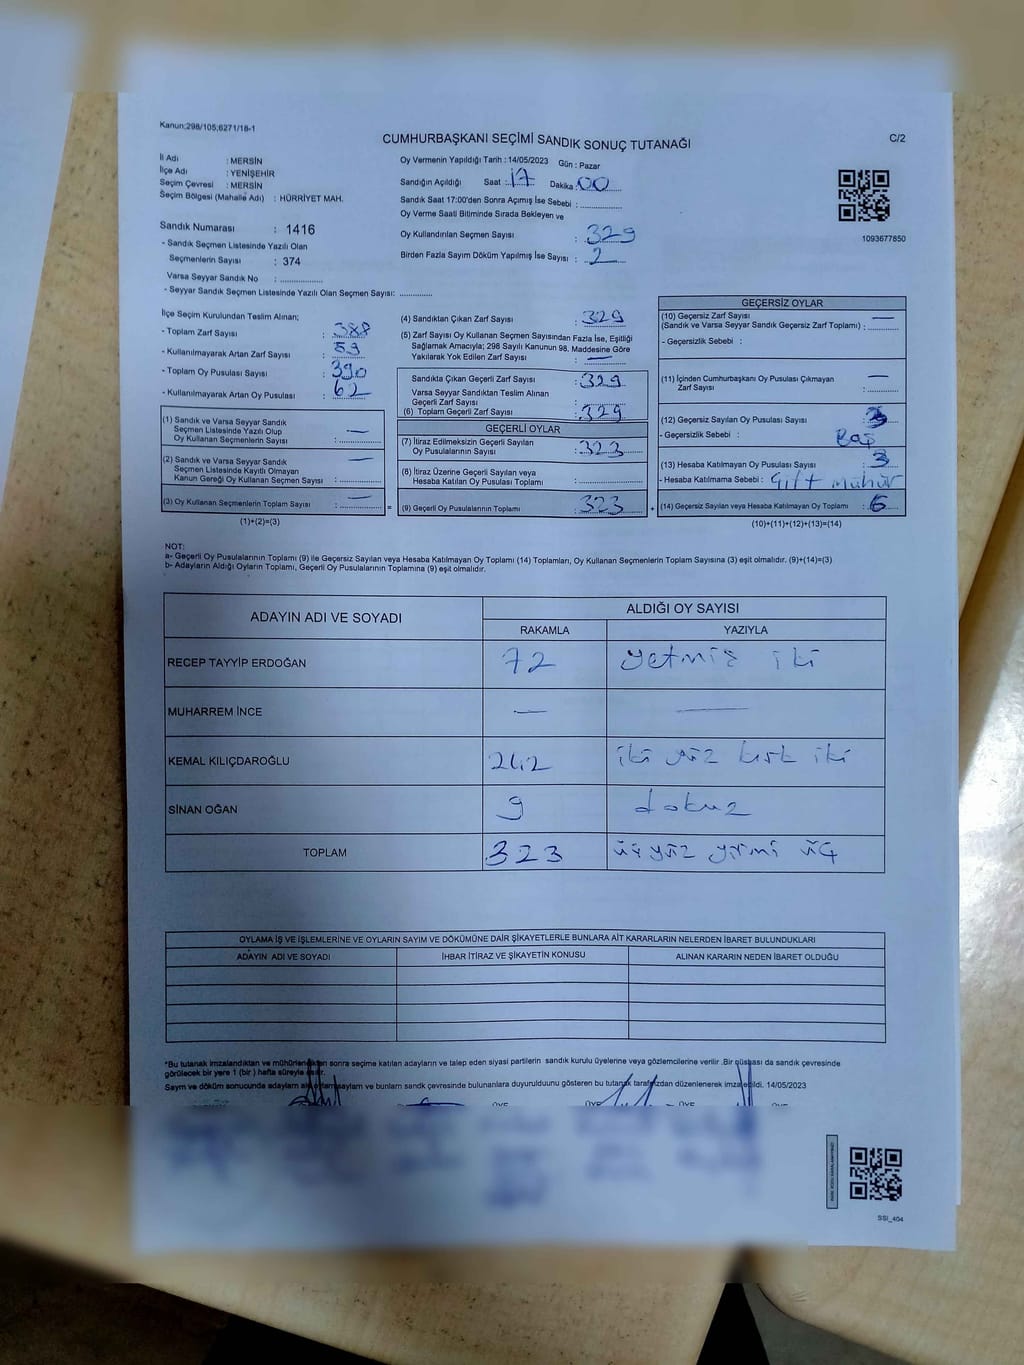 Kanun;298/105;6271/18-1
CUMHURBAŞKANI SEÇİMİ SANDIK SONUÇ TUTANAĞI
C/2
İl Adı : MERSİN
İlçe Adı : YENİŞEHİR
Seçim Çevresi : MERSİN
Seçim Bölgesi (Mahalle Adı) : HÜRRİYET MAH.
Sandık Numarası : 1416
- Sandık Seçmen Listesinde Yazılı Olan
Seçmenlerin Sayısı : 374
Varsa Seyyar Sandık No : ..............
- Seyyar Sandık Seçmen Listesinde Yazılı Olan Seçmen Sayısı: ...........
Oy Vermenin Yapıldığı Tarih : 14/05/2023 Gün : Pazar
Sandığın Açıldığı Saat : 17 Dakika : 00
Sandık Saat 17:00'den Sonra Açımış İse Sebebi : ..............
Oy Verme Saati Bitiminde Sırada Bekleyen ve
Oy Kullandırılan Seçmen Sayısı : 329
Birden Fazla Sayım Döküm Yapılmış İse Sayısı : 2
1093677850
İlçe Seçim Kurulundan Teslim Alınan;
- Toplam Zarf Sayısı : 388
- Kullanılmayarak Artan Zarf Sayısı : 59
- Toplam Oy Pusulası Sayısı : 390
- Kullanılmayarak Artan Oy Pusulası : 62
(1) Sandık ve Varsa Seyyar Sandık
Seçmen Listesinde Yazılı Olup
Oy Kullanan Seçmenlerin Sayısı : —
(2) Sandık ve Varsa Seyyar Sandık
Seçmen Listesinde Kayıtlı Olmayan
Kanun Gereği Oy Kullanan Seçmen Sayısı : —
(3) Oy Kullanan Seçmenlerin Toplam Sayısı : —
(1)+(2)=(3)
=
(4) Sandıktan Çıkan Zarf Sayısı : 329
(5) Zarf Sayısı Oy Kullanan Seçmen Sayısından Fazla İse, Eşitliği
Sağlamak Amacıyla; 298 Sayılı Kanunun 98. Maddesine Göre
Yakılarak Yok Edilen Zarf Sayısı : —
Sandıkta Çıkan Geçerli Zarf Sayısı : 329
Varsa Seyyar Sandıktan Teslim Alınan
Geçerli Zarf Sayısı
(6) Toplam Geçerli Zarf Sayısı : 329
GEÇERLİ OYLAR
(7) İtiraz Edilmeksizin Geçerli Sayılan
Oy Pusulalarının Sayısı : 323
(8) İtiraz Üzerine Geçerli Sayılan veya
Hesaba Katılan Oy Pusulası Toplamı : ..............
(9) Geçerli Oy Pusulalarının Toplamı : 323
+
GEÇERSİZ OYLAR
(10) Geçersiz Zarf Sayısı —
(Sandık ve Varsa Seyyar Sandık Geçersiz Zarf Toplamı) : ........
- Geçersizlik Sebebi :
(11) İçinden Cumhurbaşkanı Oy Pusulası Çıkmayan
Zarf Sayısı : —
(12) Geçersiz Sayılan Oy Pusulası Sayısı : 3
- Geçersizlik Sebebi : Boş
(13) Hesaba Katılmayan Oy Pusulası Sayısı : 3
- Hesaba Katılmama Sebebi : Çift mühür
(14) Geçersiz Sayılan veya Hesaba Katılmayan Oy Toplamı : 6
(10)+(11)+(12)+(13)=(14)
NOT:
a- Geçerli Oy Pusulalarının Toplamı (9) ile Geçersiz Sayılan veya Hesaba Katılmayan Oy Toplamı (14) Toplamları, Oy Kullanan Seçmenlerin Toplam Sayısına (3) eşit olmalıdır. (9)+(14)=(3)
b- Adayların Aldığı Oyların Toplamı, Geçerli Oy Pusulalarının Toplamına (9) eşit olmalıdır.
ADAYIN ADI VE SOYADI ALDIĞI OY SAYISI
RAKAMLA YAZIYLA
RECEP TAYYİP ERDOĞAN 72 yetmiş iki
MUHARREM İNCE — —
KEMAL KILIÇDAROĞLU 242 iki yüz kırk iki
SİNAN OĞAN 9 dokuz
TOPLAM 323 üç yüz yirmi üç
OYLAMA İŞ VE İŞLEMLERİNE VE OYLARIN SAYIM VE DÖKÜMÜNE DAİR ŞİKAYETLERLE BUNLARA AİT KARARLARIN NELERDEN İBARET BULUNDUKLARI
ADAYIN ADI VE SOYADI İHBAR İTİRAZ VE ŞİKAYETİN KONUSU ALINAN KARARIN NEDEN İBARET OLDUĞU
*Bu tutanak imzalandıktan ve mühürlendikten sonra seçime katılan adayların ve talep eden siyasi partilerin sandık kurulu üyelerine veya gözlemcilerine verilir .Bir nüshası da sandık çevresinde
görülecek bir yere 1 (bir ) hafta süreyle asılır.
Sayım ve döküm sonucunda adayların bunların sandık çevresinde bulunanlara duyurulduunu gösteren bu tutanak tarafımızdan düzenlenerek imza edildi. 14/05/2023
ÜYE ÜYE ÜYE ÜYE
SSI_404